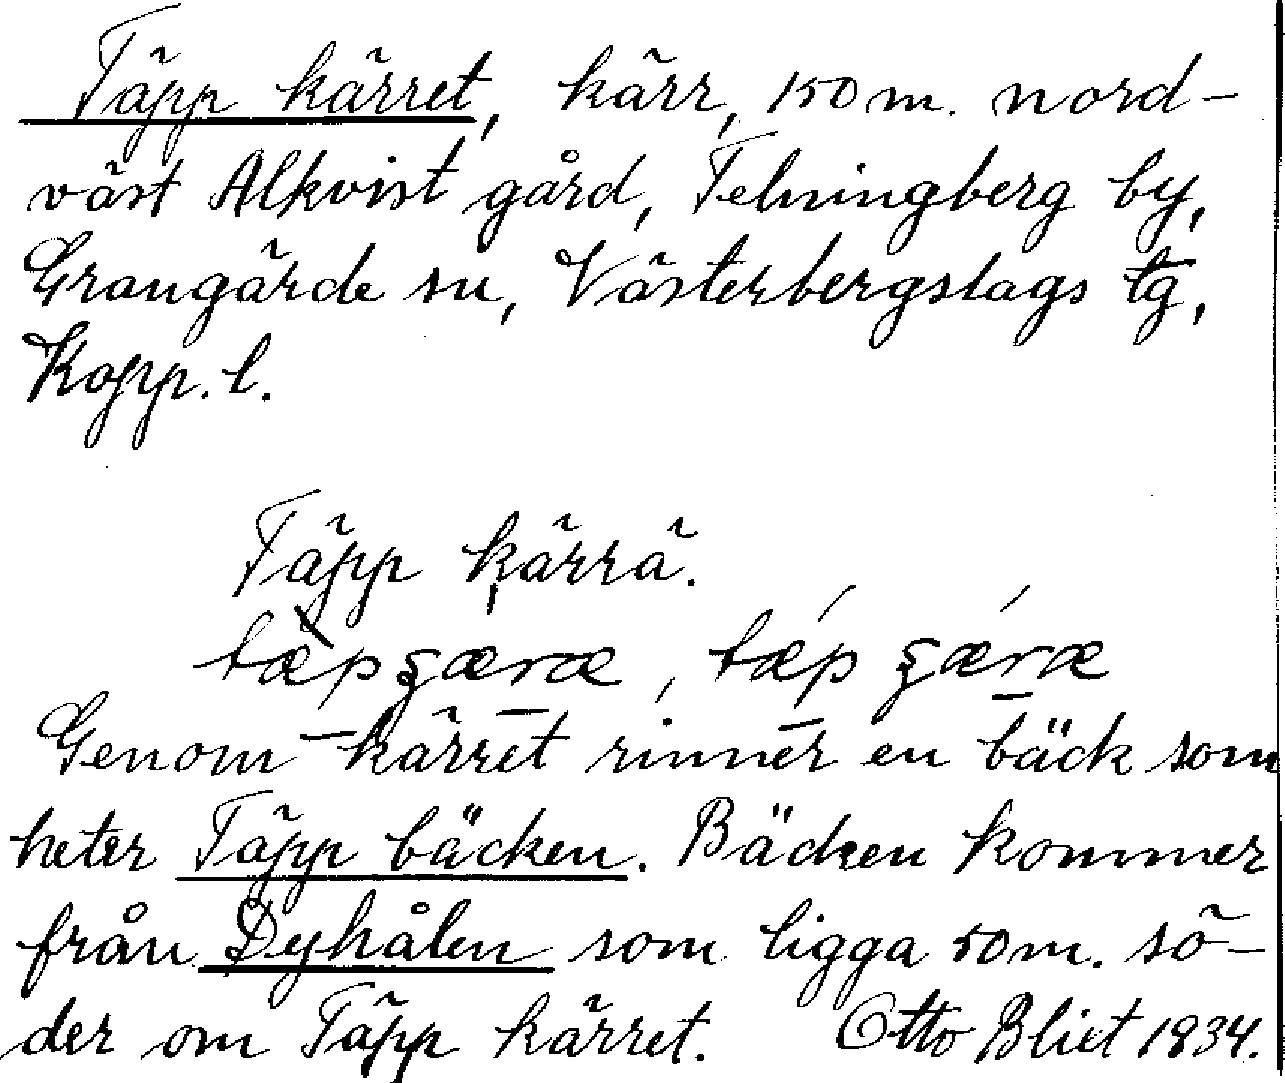 Täpp kärret, kärr, 150 m. nord-
väst Alkvist gård, Telningberg by,
Grangärde sn, Västerbergslags tg,
Kopp. l.
Täpp kärrä.
Genom kärret rinner en bäck som
heter Täpp bäcken. Bäcken kommer
från Dyhålen som ligga 50 m. sö-
der om Täpp kärret. Otto Bliet 1934.